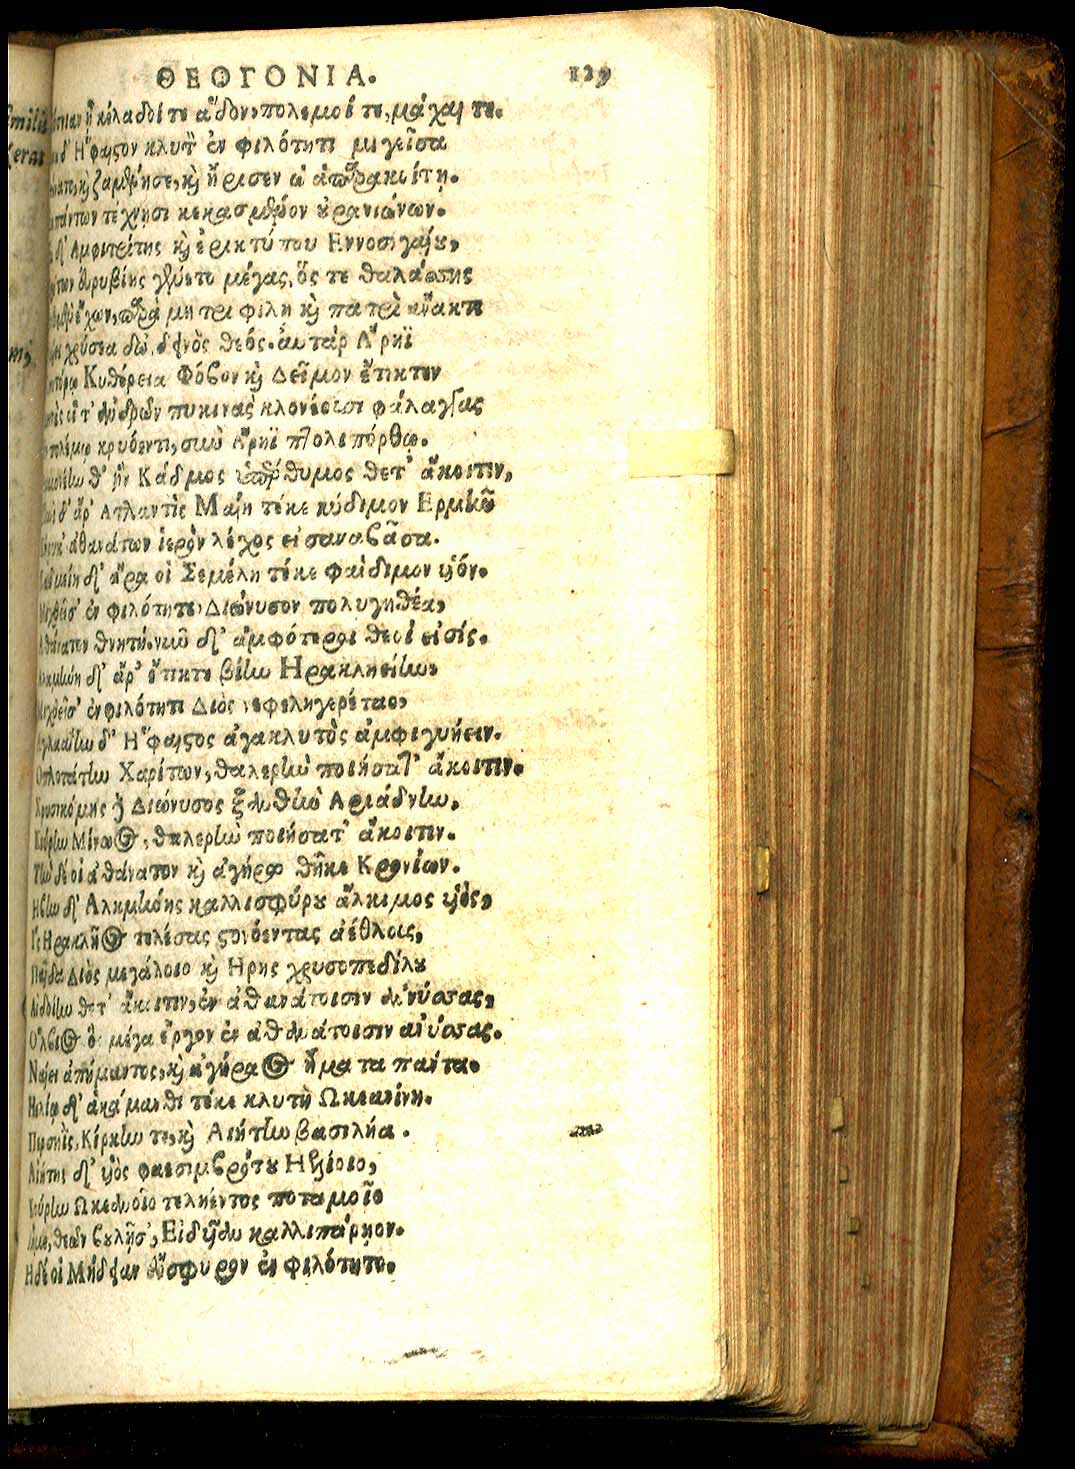 ΘΕΟΓΟΝΙΑ. 129
κέλαδοί τε ἅδον, πολεμοί τε, μάχαι τε.
δ' Ἥφαιστον κλυτὸν ἐν φιλότητι μιγεῖσα
καὶ ζαμένησε, καὶ ἤρισεν ᾧ παρακοίτῃ.
πάντων τέχνῃσι κεκασμένον οὐρανιώνων.
δ' Ἀμφιτρίτης καὶ ἐρικτύπου Εννοσιγαίου,
Τρίτων εὐρυβίης γένετο μέγας, ὅς τε θαλάσσης
ἔχων, παρὰ μητρὶ φίλῃ καὶ πατρὶ ἄνακτι
χρύσεα δῶ, δεινὸς θεός. ἀυτὰρ Ἄρηϊ
Κυθέρεια Φόβον καὶ Δεῖμον ἔτικτεν
οἵ τ' ἀνδρῶν πυκινὰς κλονέουσι φάλαγγας
πολέμῳ κρυόεντι, σὺν Ἄρηϊ πτολιπόρθῳ.
θ' ἣν Κάδμος ὑπέρθυμος θέτ' ἄκοιτιν,
δ' ἄρ' Ἀτλαντὶς Μαίη τέκε κύδιμον Ερμῆν
ἀθανάτων ἱερὸν λέχος εἰσαναβᾶσα.
Καδμείη δ' ἄρα οἱ Σεμέλη τέκε φαίδιμον υἱόν.
Μιχθεῖσ' ἐν φιλότητι, Διώνυσον πολυγηθέα,
Ἀθάνατον θνητή. νῦν δ' ἀμφότεροι θεοί εἰσίν.
Ἀλκμήνη δ' ἄρ' ἔτικτε βίην Ηρακληείην,
Μιχθεῖσ' ἐν φιλότητι Διὸς νεφεληγερέταο,
Ἀγλαΐην δ' Ἥφαιστος ἀγακλυτὸς ἀμφιγυήεις.
Ὁπλοτάτην Χαρίτων, θαλερὴν ποιήσατ' ἄκοιτιν.
Χρυσοκόμης δὲ Διώνυσος ξανθὴν Αριάδνην,
Κούρην Μίνωος, θαλερὴν ποιήσατ' ἄκοιτιν.
Τὴν δέ οἱ ἀθάνατον καὶ ἀγήρω θῆκε Κρονίων.
Ηβην δ' Αλκμήνης καλλισφύρου ἄλκιμος υἱὸς,
Ἲς Ηρακλῆος τελέσας στονόεντας ἀέθλους,
Παῖδα Διὸς μεγάλοιο καὶ Ηρης χρυσοπεδίλου
Αἰδοίην θέτ' ἄκοιτιν, ἐν ἀθανάτοισιν ἀνύσσας,
Ολβιος ὃς μέγα ἔργον ἐν ἀθανάτοισιν ἀνύσσας.
Ναίει ἀπήμαντος, καὶ ἀγήραος ἤματα πάντα.
Ηελίῳ δ' ἀκάμαντι τέκε κλυτὴ Ωκεανίνη.
Περσηῒς, Κίρκην τε, καὶ Αιήτην βασιλῆα.
Αἰήτης δ' υἱὸς φαεσιμβρότου Ηελίοιο,
Κούρην Ωκεανοῖο τελήεντος ποταμοῖο
θεῶν βουλῇσ', Εἰδυῖαν καλλιπάρῃον.
Ηδέ οἱ Μήδειαν ἐΰσφυρον ἐν φιλότητι.